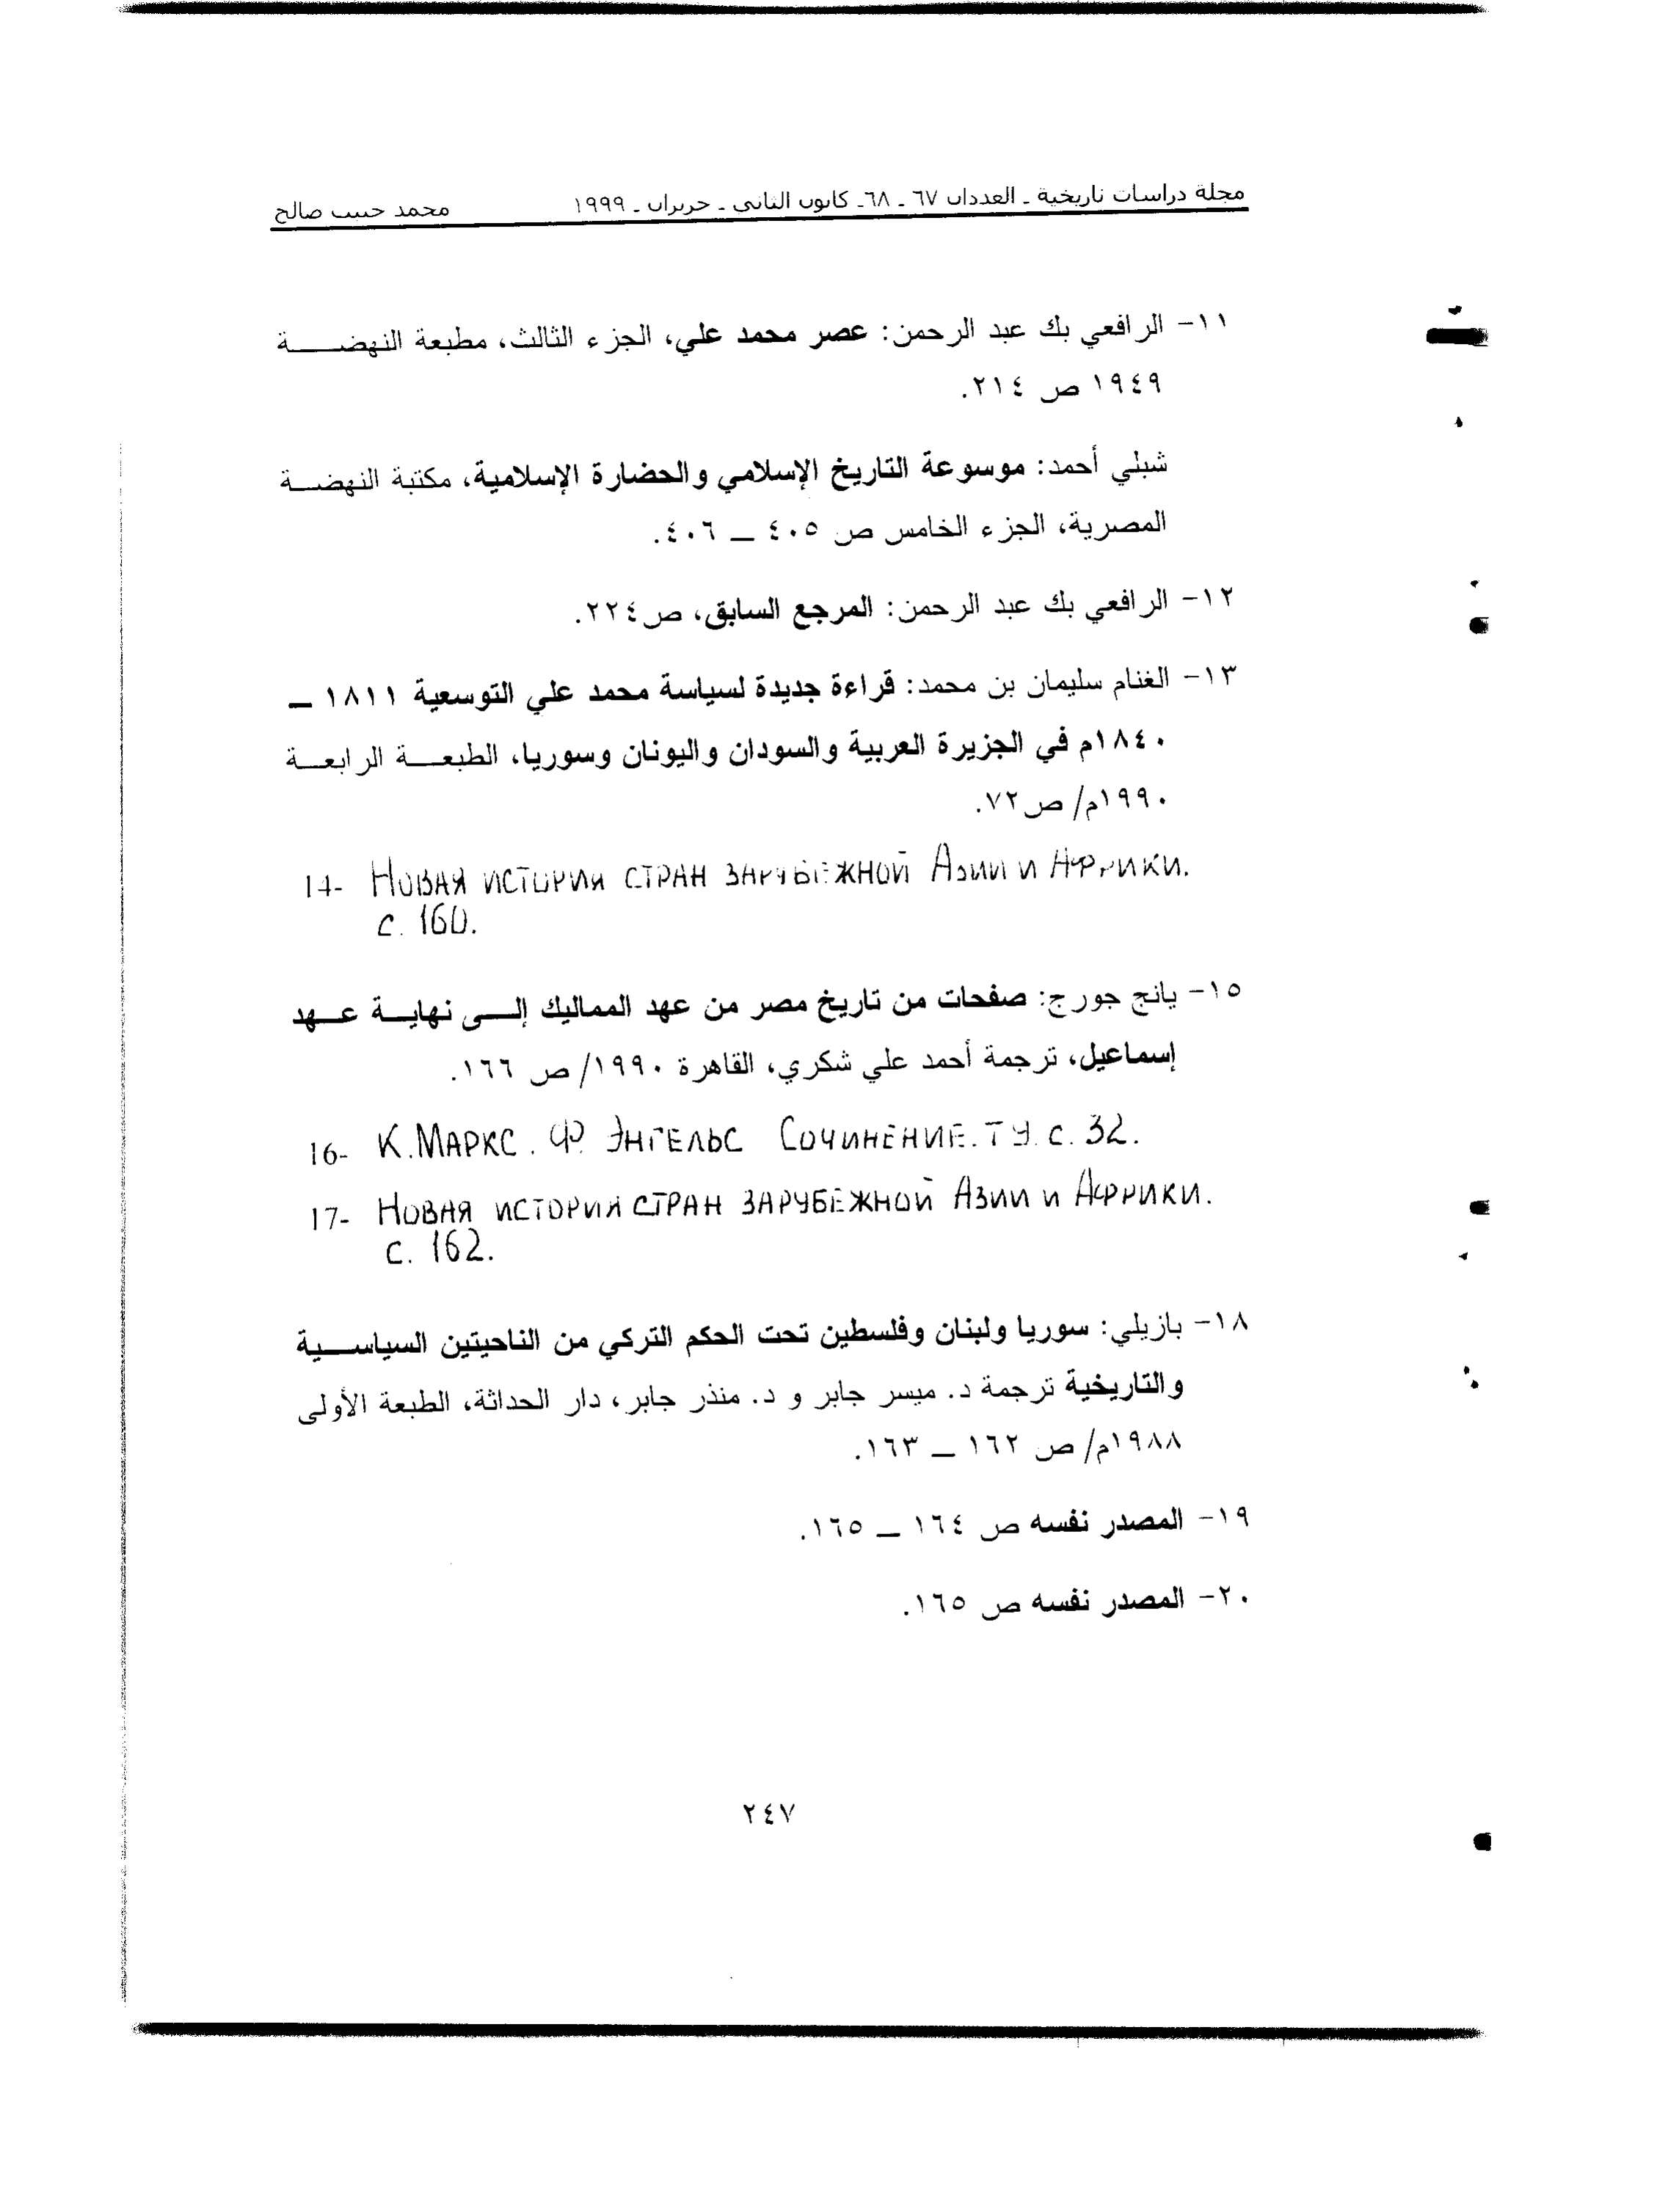 مجلة دراسات تاريخية ـ العددان ٦٧ ـ ٦٨ـ كانون الثاني ـ حزيران ـ ١٩٩٩ محمد حبيب صالح
١١- الرافعي بك عبد الرحمن: عصر محمد علي، الجزء الثالث، مطبعة النهضة
١٩٤٩ ص ٢١٤.
شبلي أحمد: موسوعة التاريخ الإسلامي والحضارة الإسلامية، مكتبة النهضة
المصرية، الجزء الخامس ص ٤٠٥ ــ ٤٠٦.
١٢- الرافعي بك عبد الرحمن: المرجع السابق، ص٢٢٤.
١٣- الغنام سليمان بن محمد: قراءة جديدة لسياسة محمد علي التوسعية ١٨١١ ــ
١٨٤٠م في الجزيرة العربية والسودان واليونان وسوريا، الطبعة الرابعة
١٩٩٠م/ ص٧٢.
14- Новая история стран зарубежной Азии и Африки.
с. 160.
١٥- يانج جورج: صفحات من تاريخ مصر من عهد المماليك إلى نهاية عهد
إسماعيل، ترجمة أحمد علي شكري، القاهرة ١٩٩٠/ ص ١٦٦.
16- К. Маркс. Ф. Энгельс Сочинение. т с. 32.
17- Новая история стран зарубежной Азии и Африки.
с. 162.
١٨- بازيلي: سوريا ولبنان وفلسطين تحت الحكم التركي من الناحيتين السياسية
والتاريخية ترجمة د. ميسر جابر و د. منذر جابر، دار الحداثة، الطبعة الأولى
١٩٨٨م/ ص ١٦٢ ــ ١٦٣.
١٩- المصدر نفسه ص ١٦٤ ــ ١٦٥.
٢٠- المصدر نفسه ص ١٦٥.
٢٤٧